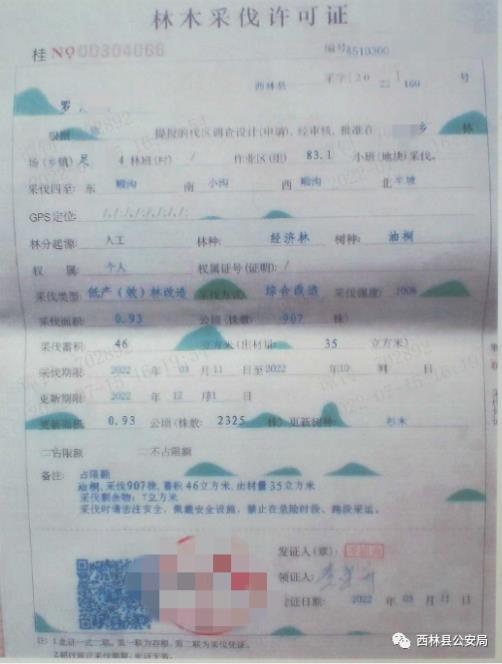 林木采伐许可证
桂 NO 00304066 编号4510300
西林县 采字[2022]169 号
罗
根据 提报的伐区调查设计(申请),经审核,批准在 乡 林
场(乡镇) 4 林班(村) / 作业区(组) 83.1 小班(地块)采伐。
采伐四至: 东 南 小沟 西 北 半坡
GPS定位: /./././././.
林分起源: 人工 林种: 经济林 树种: 油桐
权 属: 个人 权属证号(证明): /
采伐类型: 低产(效)林改造 采伐方式: 综合改造 采伐强度: 100%
采伐面积: 0.93 公顷(株数: 907 株)
采伐蓄积: 46 立方米(出材量: 35 立方米)
采伐期限: 2022 年 03 月 11 日至 2022 年 10 月 日
更新期限: 2022 年 12 月 31 日
更新面积: 0.93 公顷(株数: 2325 株) 更新树种: 杉木
占限额 不占限额
备注: 占限额
油桐,采伐907株,蓄积46立方米,出材量35立方米
采伐剩余物: 7立方米
采伐时请注意安全,佩戴安全设施,禁止在危险时段、路段采运。
发证人(章):
领证人:
发证日期: 2022 年 03 月 11 日
注: 1.此证一式二联。第一联为存根,第二联为采伐凭证。
西林县公安局